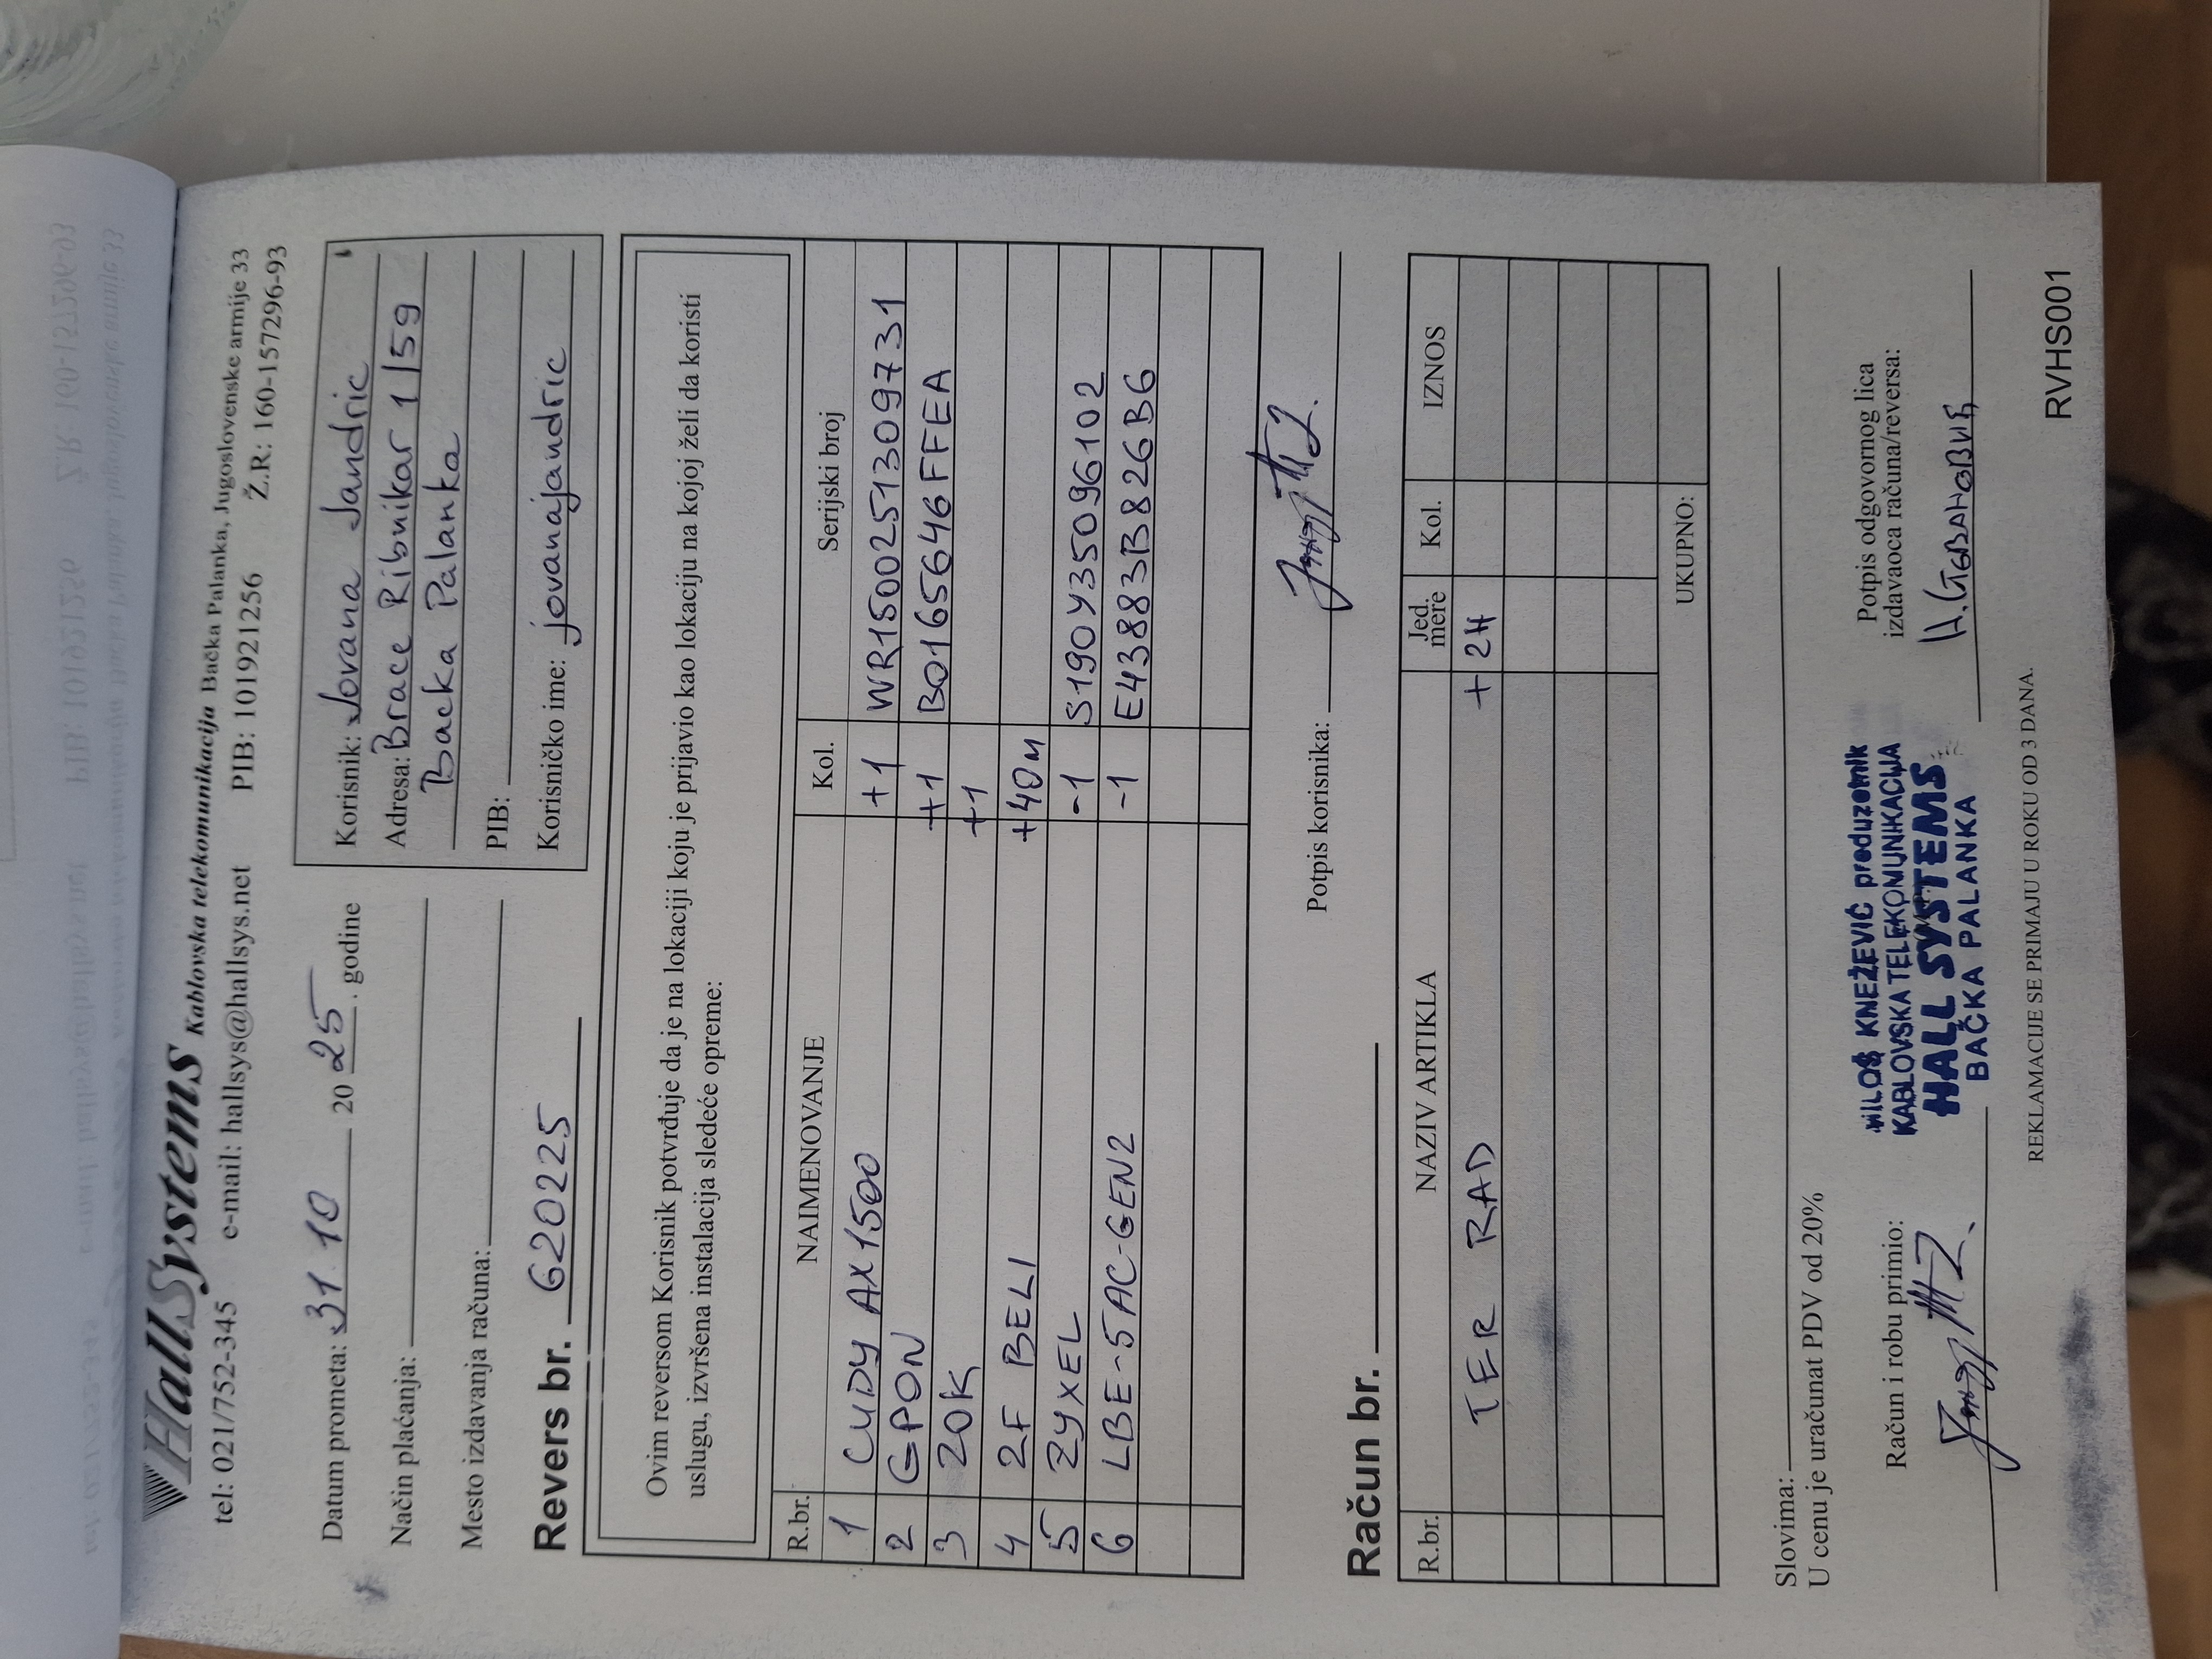 HallSystems Kablovska telekomunikacija Bačka Palanka, Jugoslovenske armije 33
tel: 021/752-345 e-mail: hallsys@hallsys.net PIB: 101921256 Ž.R.: 160-157296-93
Datum prometa: 31 10 20 25. godine
Način plaćanja:
Mesto izdavanja računa:
Korisnik: Jovana Jandric
Adresa: Brace Ribnikar 1/59
Backa Palanka
PIB:
Korisničko ime: jovanajandric
Revers br. 620225
Ovim reversom Korisnik potvrđuje da je na lokaciji koju je prijavio kao lokaciju na kojoj želi da koristi
uslugu, izvršena instalacija sledeće opreme:
R.br. NAIMENOVANJE Kol. Serijski broj
1 CUDY AX1500 +1 WR1500251309731
2 GPON +1 B0165646FFEA
3 ZOK +1
4 2F BELI +40m
5 ZYXEL -1 S190Y35096102
6 LBE-5AC-GEN2 -1 E43883B826B6
Potpis korisnika:
Račun br.
R.br. NAZIV ARTIKLA Jed. mere Kol. IZNOS
TER RAD + 2H
UKUPNO:
Slovima:
U cenu je uračunat PDV od 20%
Račun i robu primio:
MILOŠ KNEŽEVIĆ preduzetnik
KABLOVSKA TELEKOMUNIKACIJA
HALL SYSTEMS
BAČKA PALANKA
Potpis odgovornog lica
izdavaoca računa/reversa:
REKLAMACIJE SE PRIMAJU U ROKU OD 3 DANA.
RVHS001